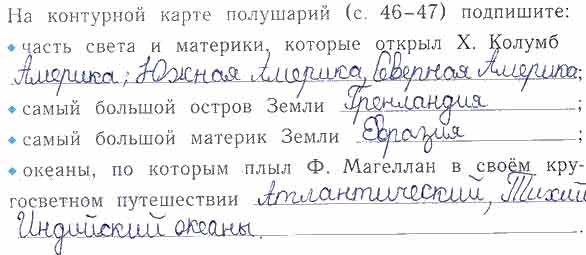 На контурной карте полушарий (с. 46-47) подпишите:
• часть света и материки, которые открыл Х. Колумб
Америка; Южная Америка, Северная Америка;
• самый большой остров Земли Гренландия ;
• самый большой материк Земли Евразия ;
• океаны, по которым плыл Ф. Магеллан в своём кру-
госветном путешествии Атлантический, Тихий
Индийский океаны. .